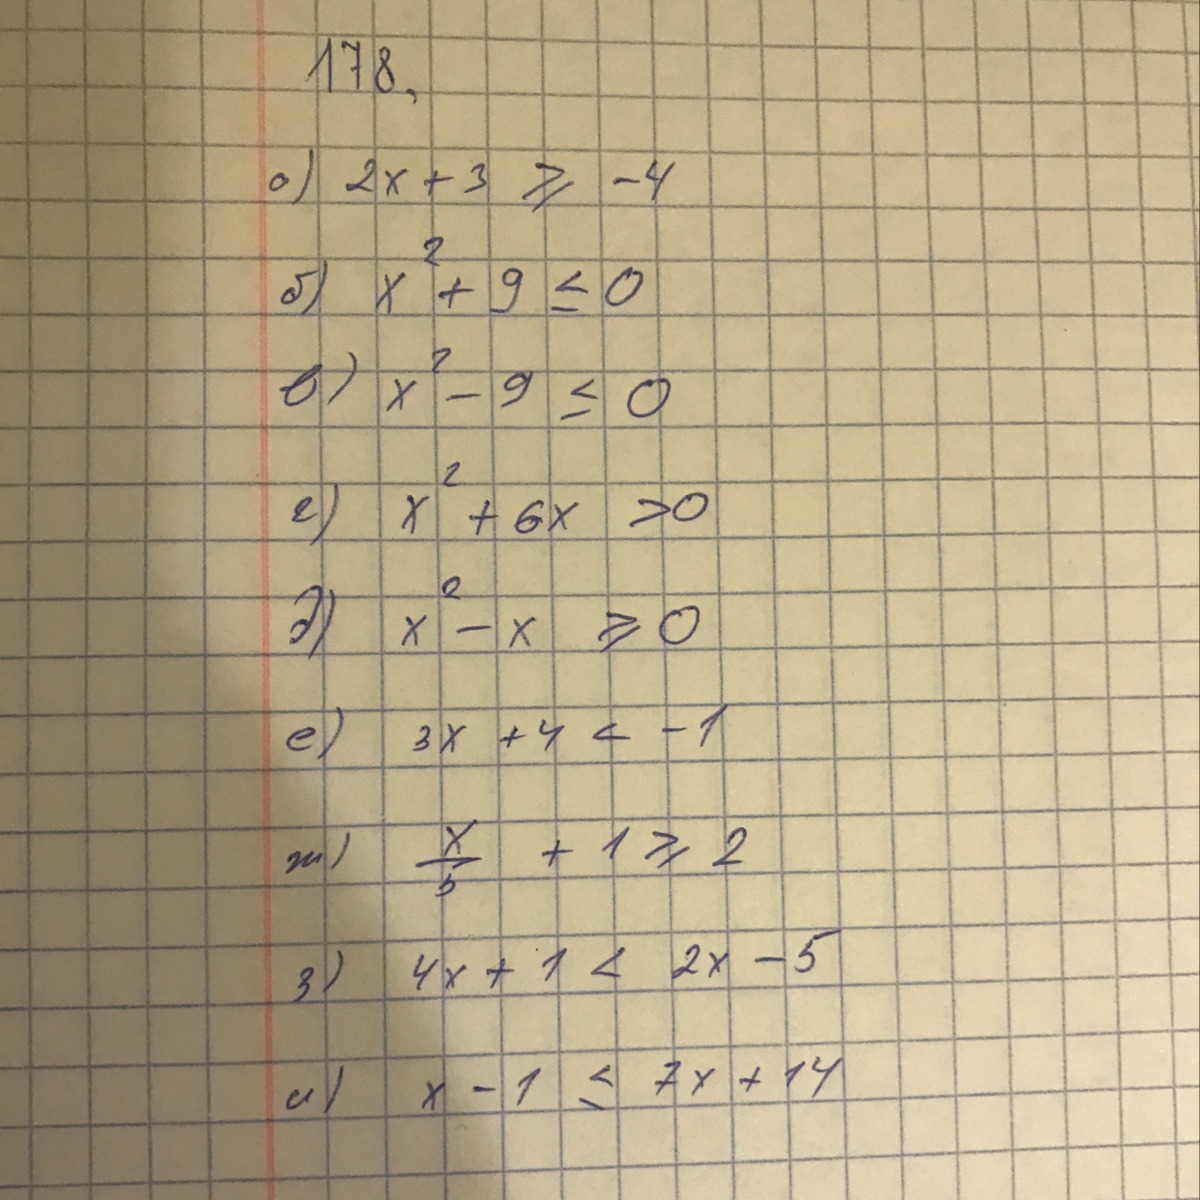 178.
а) 2x + 3 ⩾ -4
б) x² + 9 ≤ 0
в) x² - 9 ≤ 0
г) x² + 6x > 0
д) x² - x ⩾ 0
е) 3x + 4 < -1
ж) x/5 + 1 ⩾ 2
з) 4x + 1 < 2x - 5
и) x - 1 ≤ 7x + 14